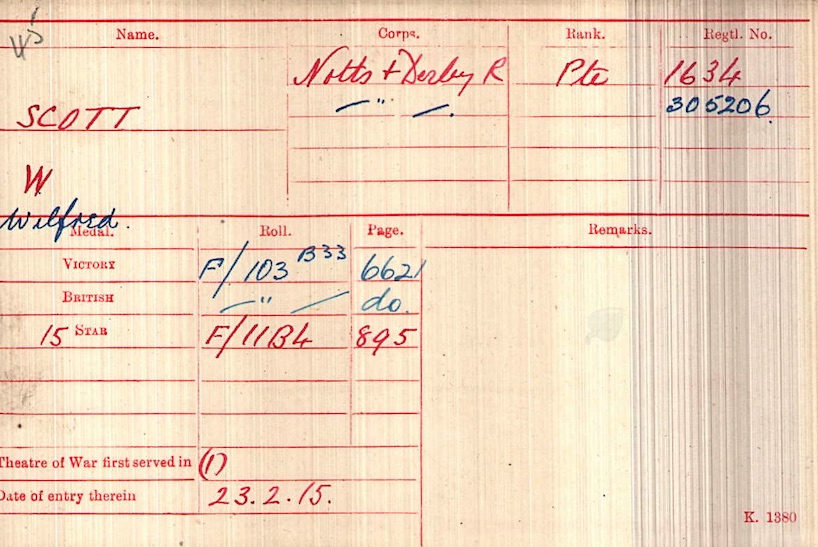 Name. Corps. Rank. Regtl. No.
Notts + Derby R Pte 1634
SCOTT —"—. 305206.
W
Wilfred.
Medal. Roll. Page. Remarks.
VICTORY F/103 B33 6621
BRITISH —"— do.
15 STAR F/11B4 895
Theatre of War first served in (1)
Date of entry therein 23.2.15.
K. 1380